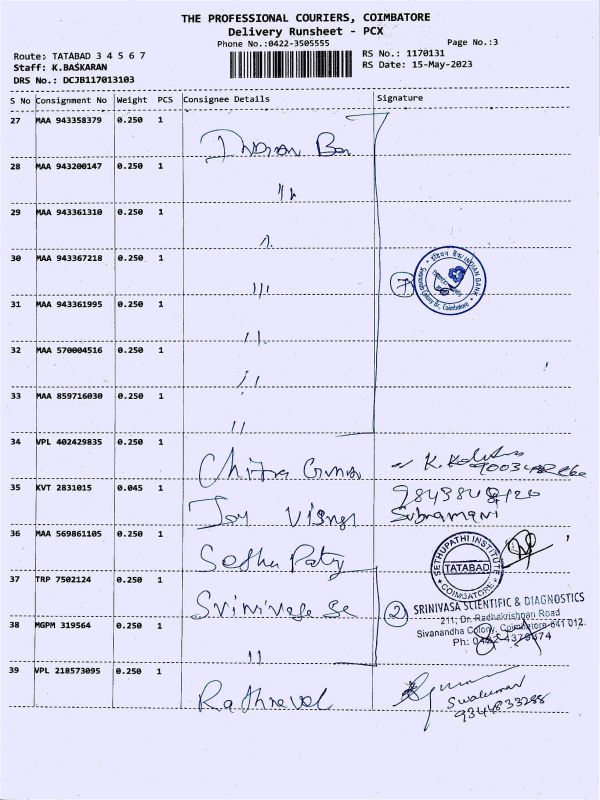 THE PROFESSIONAL COURIERS, COIMBATORE
Delivery Runsheet - PCX
Phone No.:0422-3505555
Page No.:3
Route: TATABAD 3 4 5 6 7
RS No.: 1170131
Staff: K.BASKARAN
RS Date: 15-May-2023
DRS No.: DCJB117013103
S No Consignment No Weight PCS Consignee Details Signature
27 MAA 943358379 0.250 1
Indian Ban
28 MAA 943200147 0.250 1
29 MAA 943361310 0.250 1
30 MAA 943367218 0.250 1
7
इंडियन बैंक INDIAN BANK
Sivanandha Colony Br. Coimbatore
31 MAA 943361995 0.250 1
32 MAA 570004516 0.250 1
33 MAA 859716030 0.250 1
34 VPL 402429835 0.250 1
Chitra
35 KVT 2831015 0.045 1
Subramani
36 MAA 569861105 0.250 1
Sethu Paty
SETHUPATHI INSTITUTE
TATABAD
COIMBATORE
37 TRP 7502124 0.250 1
Srinivasa Se
2
SRINIVASA SCIENTIFIC & DIAGNOSTICS
211, Dr. Radhakrishnan Road
Sivanandha Colony, Coimbatore-641 012.
Ph: 0422-4379474
38 MGPM 319564 0.250 1
39 VPL 218573095 0.250 1
Rathnavel
Sivakumar
9344833288